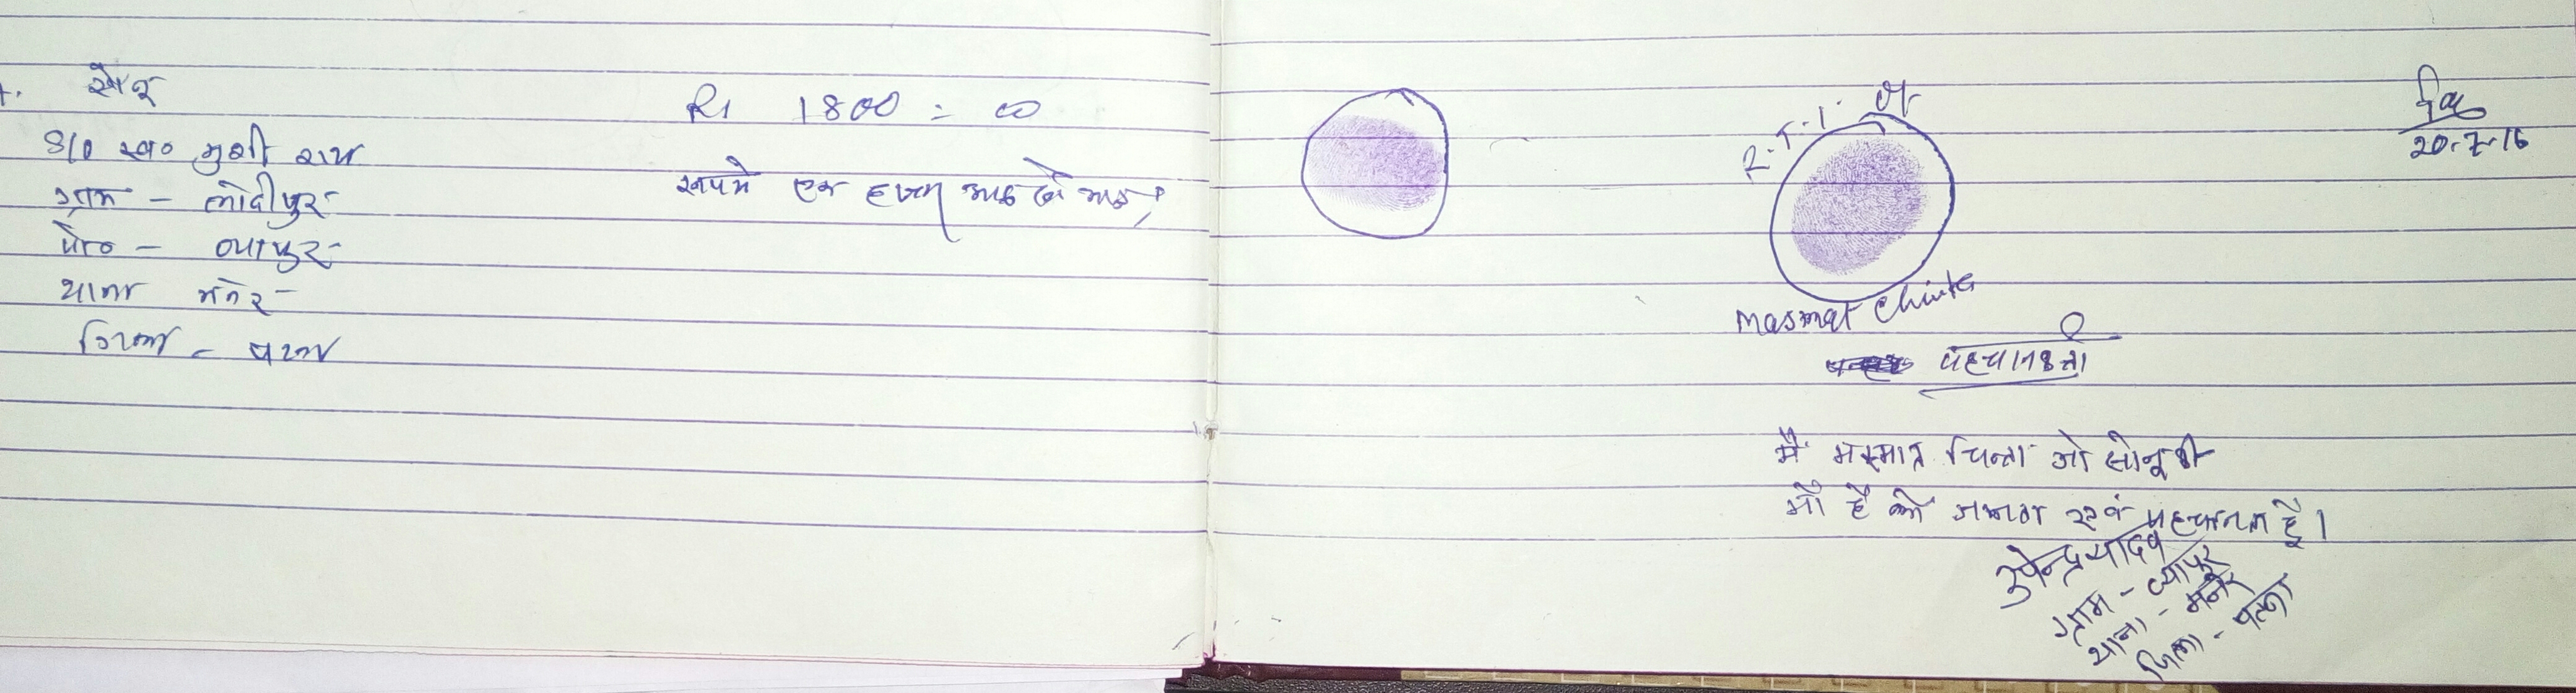 सोनू
S/O स्व० मुंशी राय
ग्राम - लोदीपुर
पो० - ब्यापुर
थाना मनेर
जिला - पटना
Rs 1800 = 00
रूपये एक हजार आठ सौ मात्र
R.T.I. of
Masmat Chinta
पहचानकर्ता
20.7.16
मैं मस्मात चिन्ता जो सोनू की
माँ है को जानता एवं पहचानता हूँ।
उपेन्द्र यादव
ग्राम - ब्यापुर
थाना - मनेर
जिला - पटना